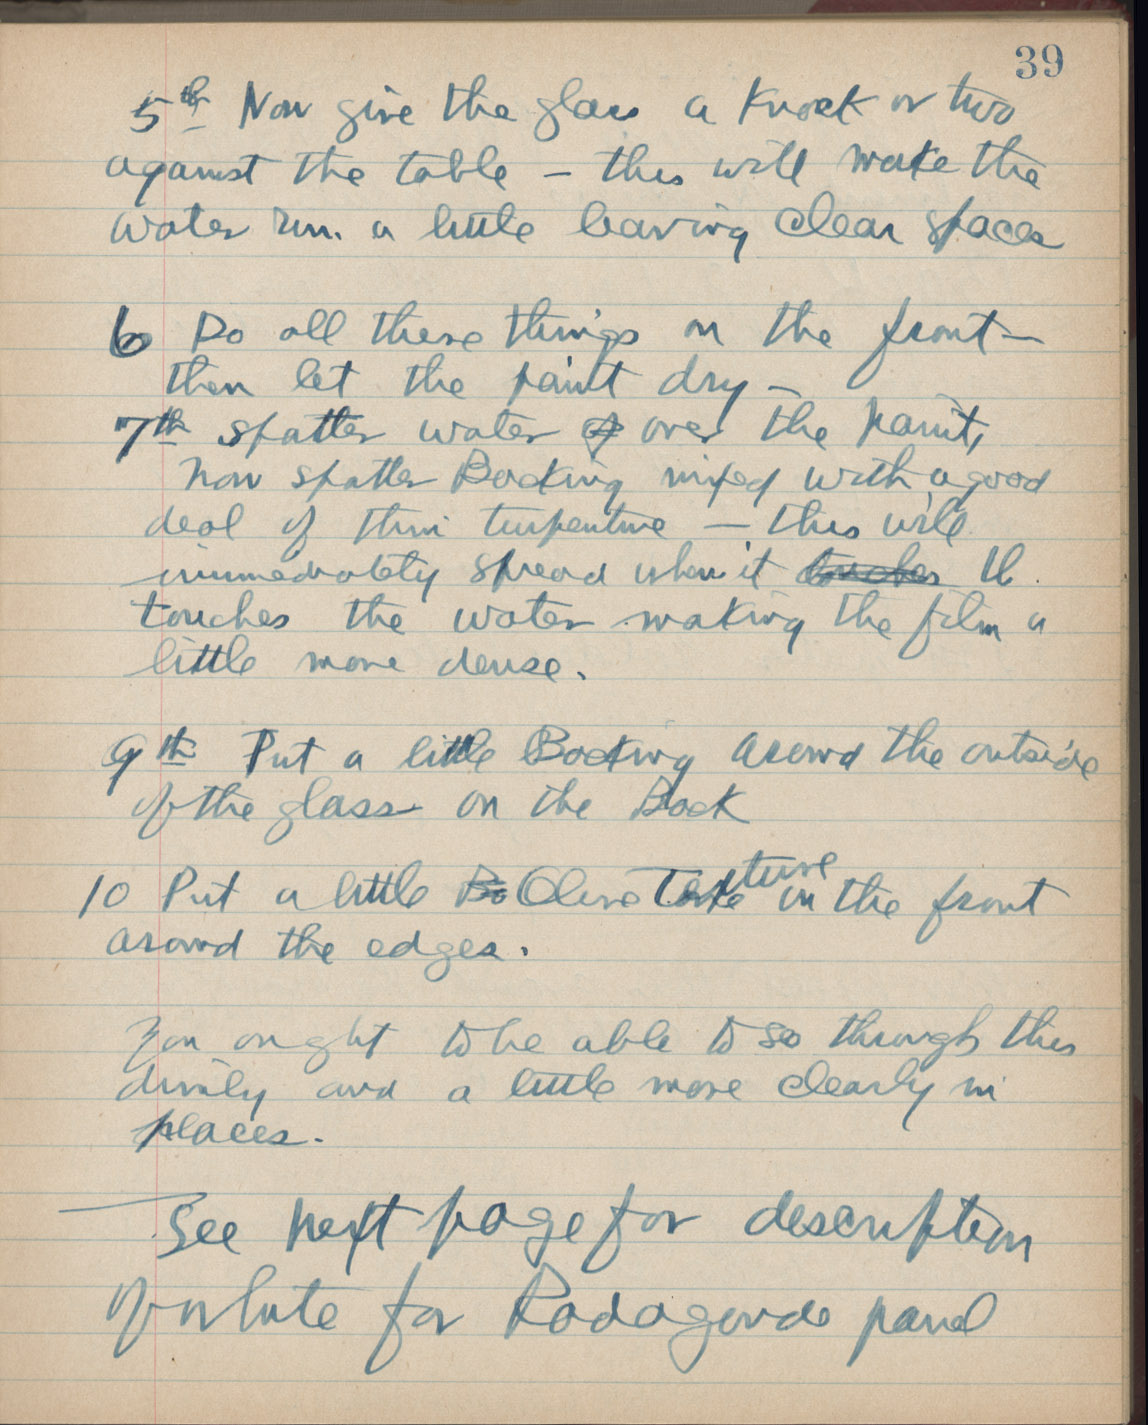 39
5th Now give the glass a Knock or two
against the table – this will make the
water run a little leaving clear spaces
6 Do all these things on the front –
then let the paint dry –
7th spatter water of over the paint,
Now spatter Backing mixed with a good
deal of thin turpentine – this will
immediately spread when it touches th
touches the water making the film a
little more dense.
9th Put a little Backing around the outside
of the glass on the Back
10 Put a little Ba Olive Texture on the front
around the edges.
You ought to be able to see through this
dimly and a little more clearly in
places.
See next page for description
of white for Radagonde panel